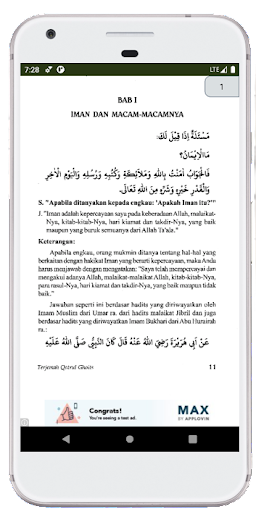 7:28
LTE
1
BAB I
IMAN DAN MACAM-MACAMNYA
مَسْئَلَةٌ إِذَا قِيْلَ لَكَ:
مَا الْإِيْمَانُ؟
فَالْجَوَابُ آمَنْتُ بِاللهِ وَمَلَآئِكَتِهِ وَكُتُبِهِ وَرُسُلِهِ وَالْيَوْمِ الْآخِرِ
وَالْقَدْرِ خَيْرِهِ وَشَرِّهِ مِنَ اللهِ تَعَالَى.
S. "Apabila ditanyakan kepada engkau: 'Apakah Iman itu?'"
J. "Iman adalah kepercayaan saya pada keberadaan Allah, malaikat-
Nya, kitab-kitab-Nya, hari kiamat dan takdir-Nya, yang baik
maupun yang buruk semuanya dari Allah Ta'ala."
Keterangan:
Apabila engkau, orang mukmin ditanya tentang hal-hal yang
berkaitan dengan hakikat Iman yang berarti kepercayaan, maka Anda
harus menjawab dengan mengatakan: "Saya telah mempercayai dan
mengakui adanya Allah, malaikat-malaikat Allah, kitab-kitab-Nya,
para rasul-Nya, hari kiamat dan takdir-Nya, yang baik maupun tidak
baik."
Jawaban seperti ini berdasar hadits yang diriwayatkan oleh
Imam Muslim dari Umar ra. dari hadits malaikat Jibril dan juga
berdasar hadits yang diriwayatkan Imam Bukhari dari Abu Hurairah
ra.:
عَنْ أَبِي هُرَيْرَةَ رَضِيَ اللهُ عَنْهُ قَالَ كَانَ النَّبِيُّ صَلَّى اللهُ عَلَيْهِ
Terjemah Qotrul Ghoits 11
Congrats!
You're seeing a test ad.
MAX
BY APPLOVIN